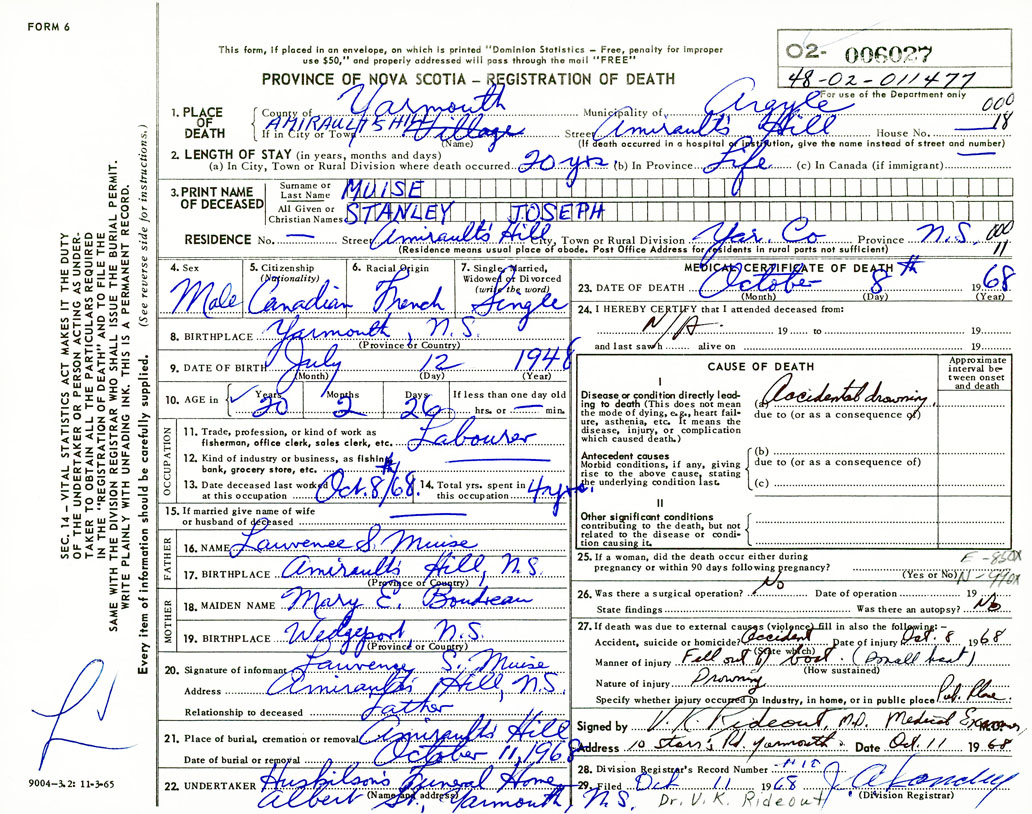 FORM 6
This form, if placed in an envelope, on which is printed "Dominion Statistics – Free, penalty for improper
use $50," and properly addressed will pass through the mail "FREE"
PROVINCE OF NOVA SCOTIA – REGISTRATION OF DEATH
02- 006027
48-02-011477
For use of the Department only
1. PLACE OF DEATH
County of Yarmouth Municipality of Argyle 000
AMIRAULTS HILL
If in City or Town Village (Name) Street Amirault's Hill House No. — 18
(If death occurred in a hospital or institution, give the name instead of street and number)
2. LENGTH OF STAY (in years, months and days)
(a) In City, Town or Rural Division where death occurred 20 yrs (b) In Province Life (c) In Canada (if immigrant) —
3. PRINT NAME OF DECEASED
Surname or Last Name MUISE
All Given or Christian Names STANLEY JOSEPH
RESIDENCE No. — Street Amirault's Hill City, Town or Rural Division Yar. Co Province N.S. 000
11
(Residence means usual place of abode. Post Office Address for residents in rural parts not sufficient)
4. Sex Male
5. Citizenship (Nationality) Canadian
6. Racial Origin French
7. Single, Married, Widowed or Divorced (write the word) Single
8. BIRTHPLACE Yarmouth, N.S.
(Province or Country)
9. DATE OF BIRTH July 12 1948
(Month) (Day) (Year)
10. AGE in Years 20 Months 2 Days 26 If less than one day old hrs. or — min.
OCCUPATION
11. Trade, profession, or kind of work as
fisherman, office clerk, sales clerk, etc. Labourer
12. Kind of industry or business, as fishing,
bank, grocery store, etc.
13. Date deceased last worked
at this occupation Oct. 8/68.
14. Total yrs. spent in
this occupation 4 yrs.
15. If married give name of wife
or husband of deceased
FATHER
16. NAME Lawrence S. Muise
17. BIRTHPLACE Amirault's Hill, N.S.
(Province or Country)
MOTHER
18. MAIDEN NAME Mary E. Boudreau
19. BIRTHPLACE Wedgeport, N.S.
(Province or Country)
20. Signature of informant Lawrence S. Muise
Address Amirault's Hill, N.S.
Relationship to deceased Father
21. Place of burial, cremation or removal Amirault's Hill
Date of burial or removal October 11, 1968
22. UNDERTAKER Huskilson's Funeral Home
(Name and address) Albert St., Yarmouth, N.S.
MEDICAL CERTIFICATE OF DEATH
23. DATE OF DEATH October 8th 1968
(Month) (Day) (Year)
24. I HEREBY CERTIFY that I attended deceased from:
N/A 19 to 19
and last saw h alive on 19
CAUSE OF DEATH
Approximate interval between onset and death
I
Disease or condition directly leading
to death (This does not mean
the mode of dying, e.g., heart failure,
asthenia, etc. It means the
disease, injury, or complication
which caused death.)
(a) Accidental drowning
due to (or as a consequence of)
Antecedent causes
Morbid conditions, if any, giving
rise to the above cause, stating
the underlying condition last.
(b)
due to (or as a consequence of)
(c)
II
Other significant conditions
contributing to the death, but not
related to the disease or condition
causing it.
25. If a woman, did the death occur either during
pregnancy or within 90 days following pregnancy?
(Yes or No)
26. Was there a surgical operation? No Date of operation 19
State findings Was there an autopsy? No
27. If death was due to external causes (violence) fill in also the following:–
Accident, suicide or homicide? Accident Date of injury Oct. 8 1968
(State which)
Manner of injury Fell out of boat. (small boat)
(How sustained)
Nature of injury Drowning
Specify whether injury occurred in Industry, in home, or in public place Pub. Place
Signed by V. K. Rideout, M.D. Medical Examiner
Address 10 Starr's Rd. Yarmouth. Date Oct. 11 1968
28. Division Registrar's Record Number
29. Filed Oct 11 1968
(Division Registrar)
Dr. V. K. Rideout
SEC. 14 – VITAL STATISTICS ACT MAKES IT THE DUTY
OF THE UNDERTAKER OR PERSON ACTING AS UNDERTAKER
TO OBTAIN ALL THE PARTICULARS REQUIRED
IN THE "REGISTRATION OF DEATH" AND TO FILE THE
SAME WITH THE DIVISION REGISTRAR WHO SHALL ISSUE THE BURIAL PERMIT.
WRITE PLAINLY WITH UNFADING INK. THIS IS A PERMANENT RECORD.
Every item of information should be carefully supplied. (See reverse side for instructions.)
9004-3.2: 11-3-65